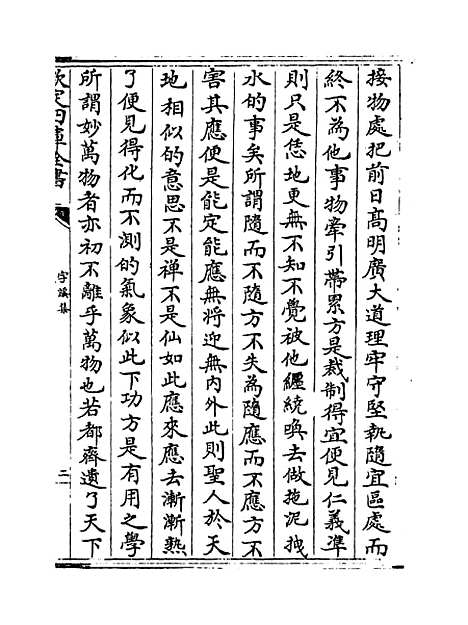 接物處把前日高明廣大道理牢守堅執隨宜區處而
終不為他事物牽引帶累方是裁制得宜便見仁義準
則只是恁地更無不知不覺被他纏繞喚去做拖泥拽
水的事矣所謂隨而不隨方不失為隨應而不應方不
害其應便是能定能應無將迎無內外此則聖人於天
地相似的意思不是禅不是仙如此應來應去漸漸熟
了便見得化而不測的氣象似此下功方是有用之學
所謂妙萬物者亦初不離乎萬物也若都齊遺了天下
欽定四庫全書
字溪集
三